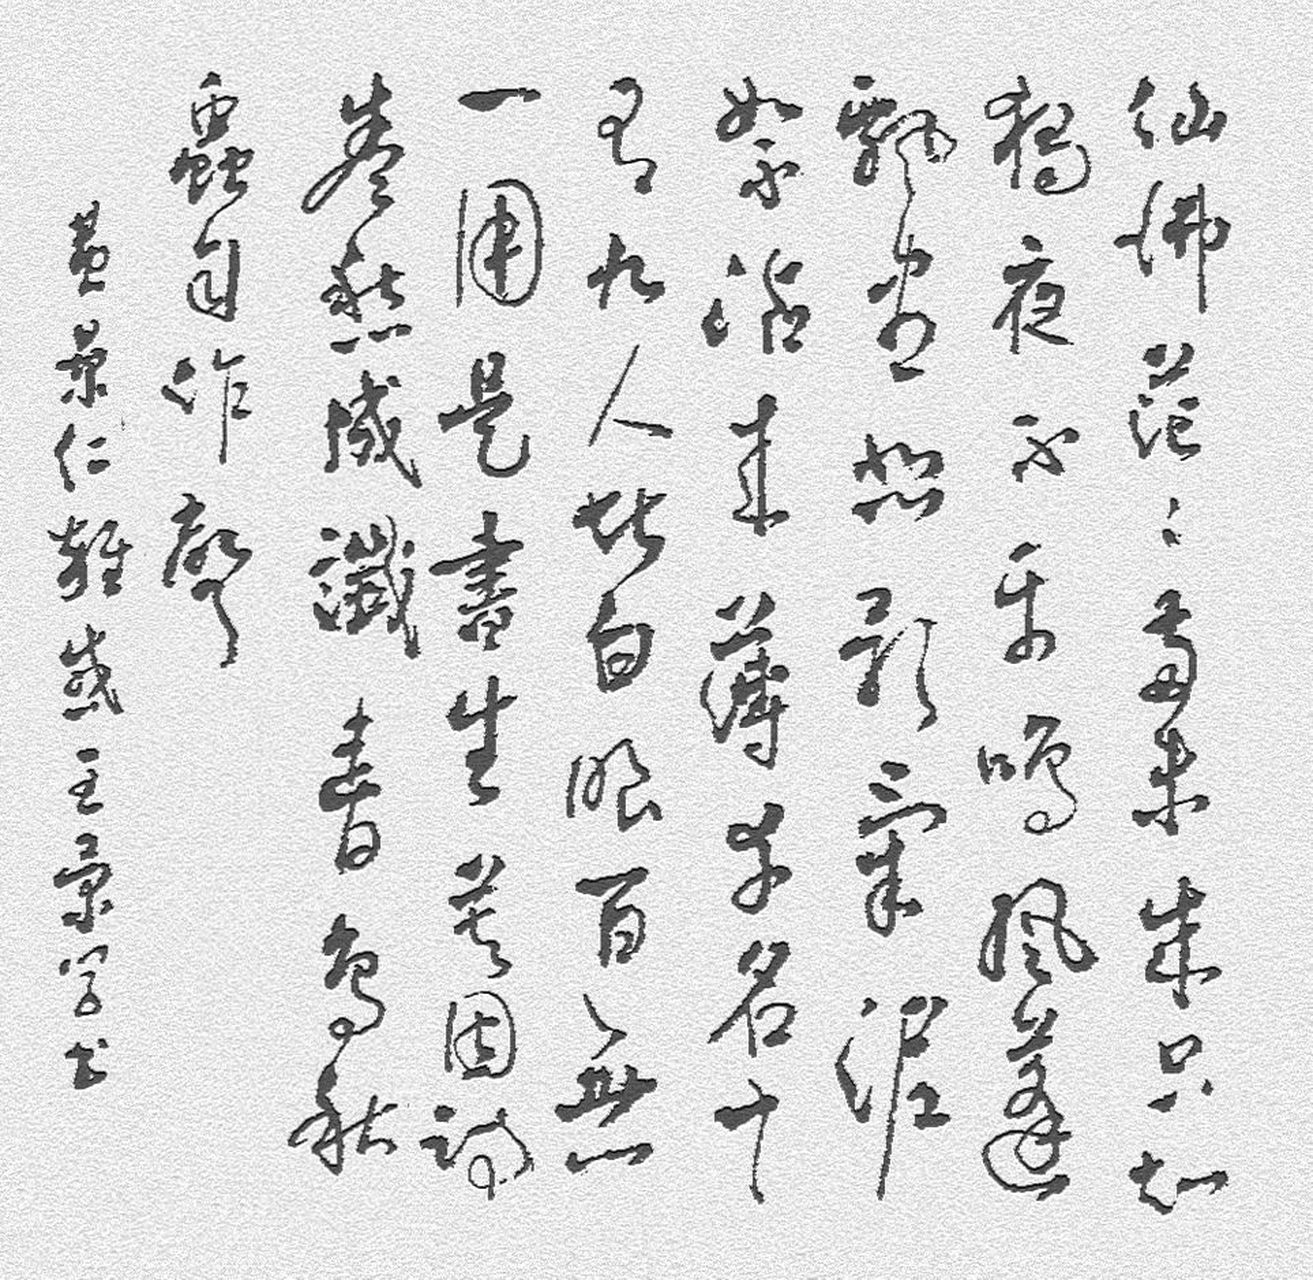 仙佛茫々兩未成只知
獨夜不平鳴風蓬
飄盡悲歌氣泥
絮沾来薄倖名十
有九人堪白眼百無
一用是書生莫因詩
卷愁成讖春鳥秋
蟲自作聲
黄景仁雜感王景学书